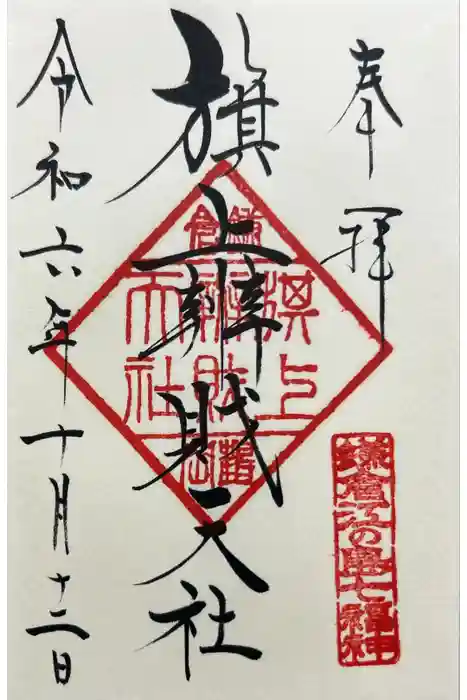 奉拝
旗上辨財天社
令和六年十月十二日
鎌倉
旗上
辨財
天社
鎌倉江の島七福神